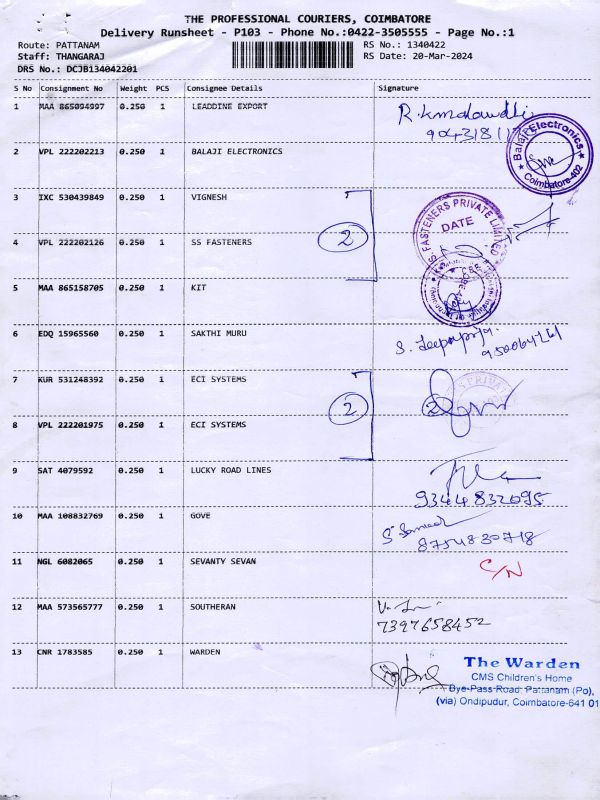 THE PROFESSIONAL COURIERS, COIMBATORE
Delivery Runsheet - P103 - Phone No.:0422-3505555 - Page No.:1
Route: PATTANAM RS No.: 1340422
Staff: THANGARAJ RS Date: 20-Mar-2024
DRS No.: DCJB134042201
S No Consignment No Weight PCS Consignee Details Signature
1 MAA 865094997 0.250 1 LEADDINE EXPORT
2 VPL 222202213 0.250 1 BALAJI ELECTRONICS
Balaji Electronics
Coimbatore-402
3 IXC 530439849 0.250 1 VIGNESH
2
FASTENERS PRIVATE LIMITED
DATE
4 VPL 222202126 0.250 1 SS FASTENERS
5 MAA 865158705 0.250 1 KIT
6 EDQ 15965560 0.250 1 SAKTHI MURU
7 KUR 531248392 0.250 1 ECI SYSTEMS
2 2
8 VPL 222201975 0.250 1 ECI SYSTEMS
9 SAT 4079592 0.250 1 LUCKY ROAD LINES
9344832095
10 MAA 108832769 0.250 1 GOVE
8754830718
11 NGL 6082065 0.250 1 SEVANTY SEVAN C/N
12 MAA 573565777 0.250 1 SOUTHERAN
7397658452
13 CNR 1783585 0.250 1 WARDEN
The Warden
CMS Children's Home
Bye-Pass Road, Pattanam (Po),
(via) Ondipudur, Coimbatore-641 01